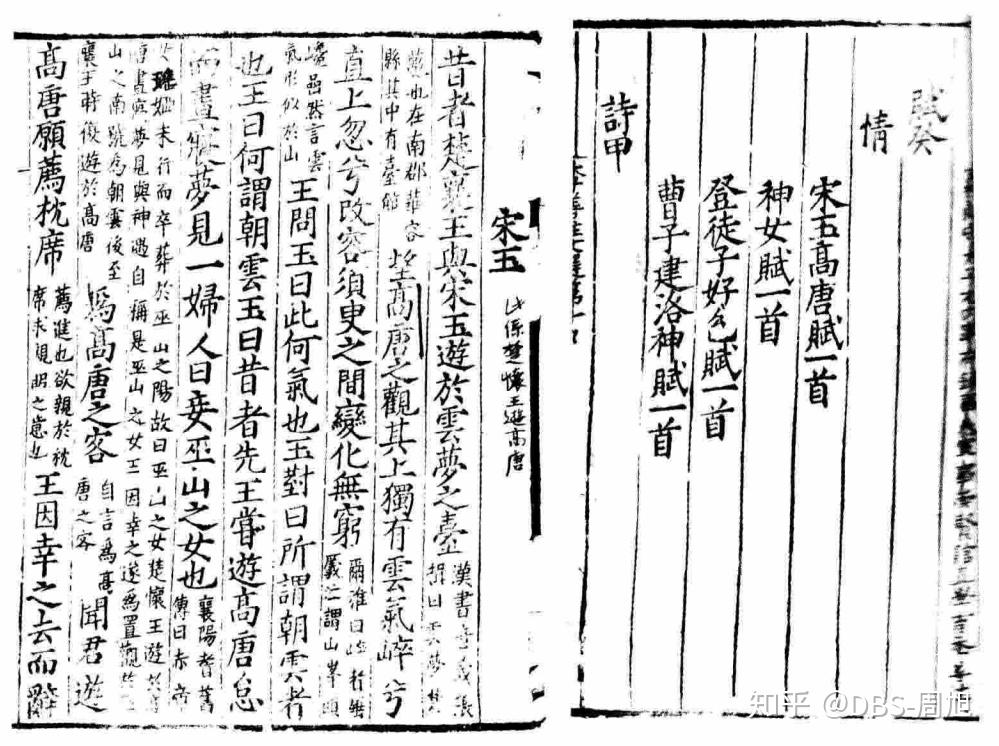 賦癸
情
宋玉高唐賦一首
神女賦一首
登徒子好色賦一首
曹子建洛神賦一首
詩甲
宋玉 此係楚懷王遊高唐
昔者楚襄王與宋玉遊於雲夢之臺 漢書音義張 揖曰雲夢楚
藪也在南郡華容 縣其中有臺館 望高唐之觀其上獨有雲氣崪兮
直上忽兮改容須臾之間變化無窮 爾雅曰崒者 謂山峯頭
巉嵒然言雲 氣形似於山 王問玉曰此何氣也玉對曰所謂朝雲者
也王曰何謂朝雲玉曰昔者先王嘗遊高唐怠
而晝寢夢見一婦人曰妾巫山之女也 襄陽耆舊 傳曰赤帝
女瑤姬未行而卒葬於巫山之陽故曰巫山之女楚懷王遊於高
唐晝寢夢見與神遇自稱是巫山之女王因幸之遂為置觀於巫
山之南號為朝雲後至 襄王時復遊於高唐 為高唐之客 自言為高 唐之客 聞君遊
高唐願薦枕席 薦進也欲親於枕 席求親昵之意也 王因幸之去而辭
知乎 @DBS-周旭